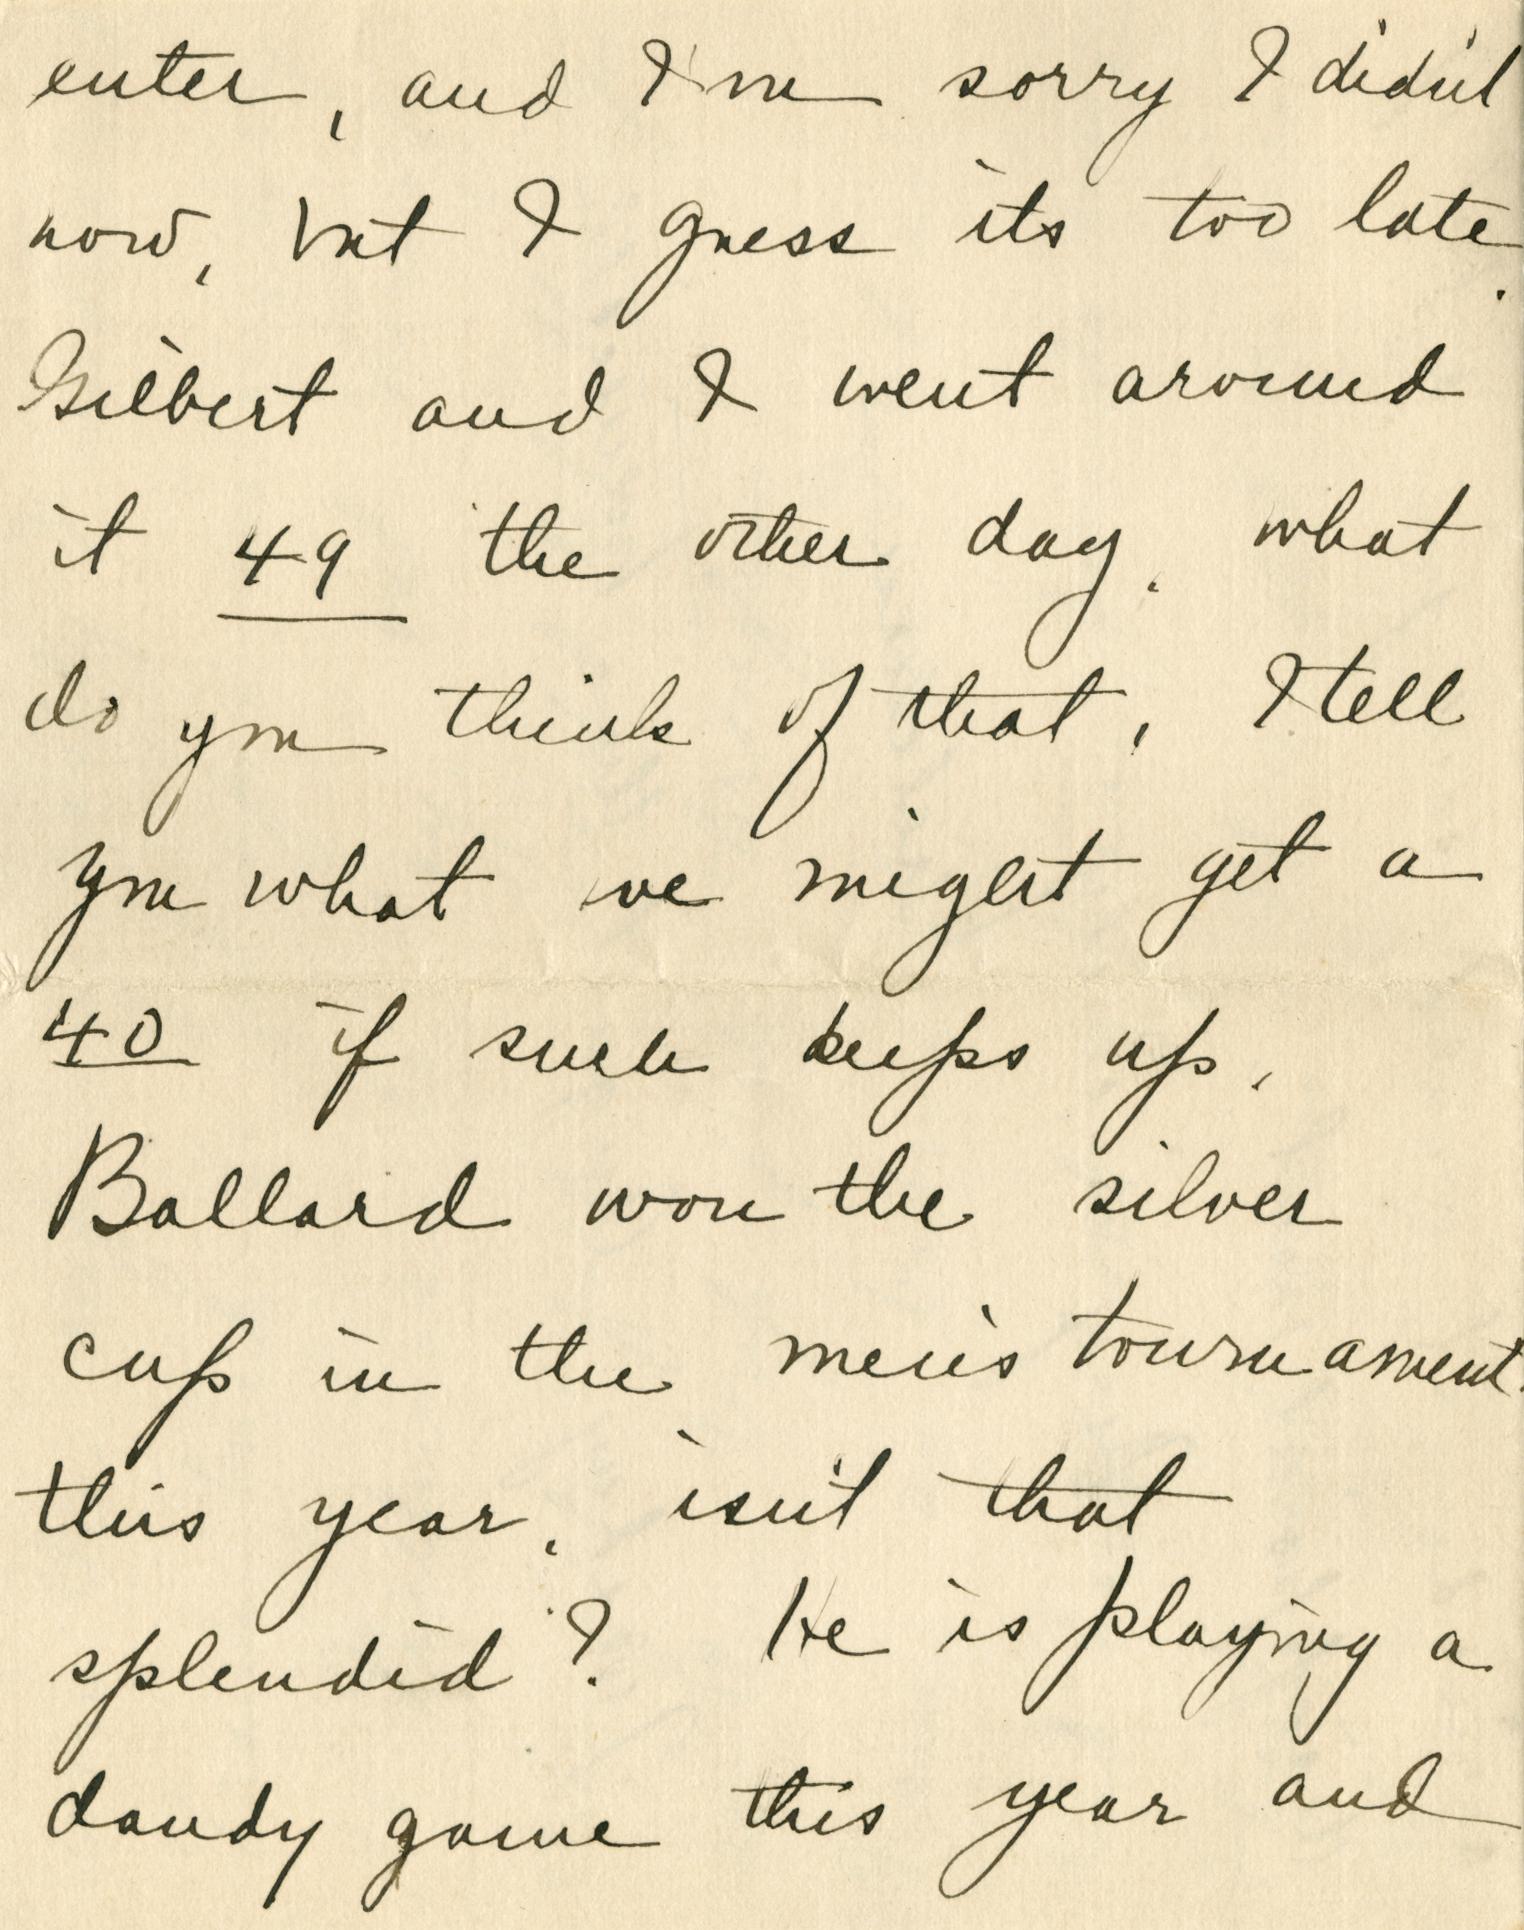 enter, and I'm sorry I didn't
now, but I guess its too late.
Gilbert and I went around
it 49 the other day, what
do you think of that, I tell
you what we might get a
40 if such keeps up,
Ballard won the silver
cup in the men's tournament.
this year, isn't that
splendid? He is playing a
dandy game this year and